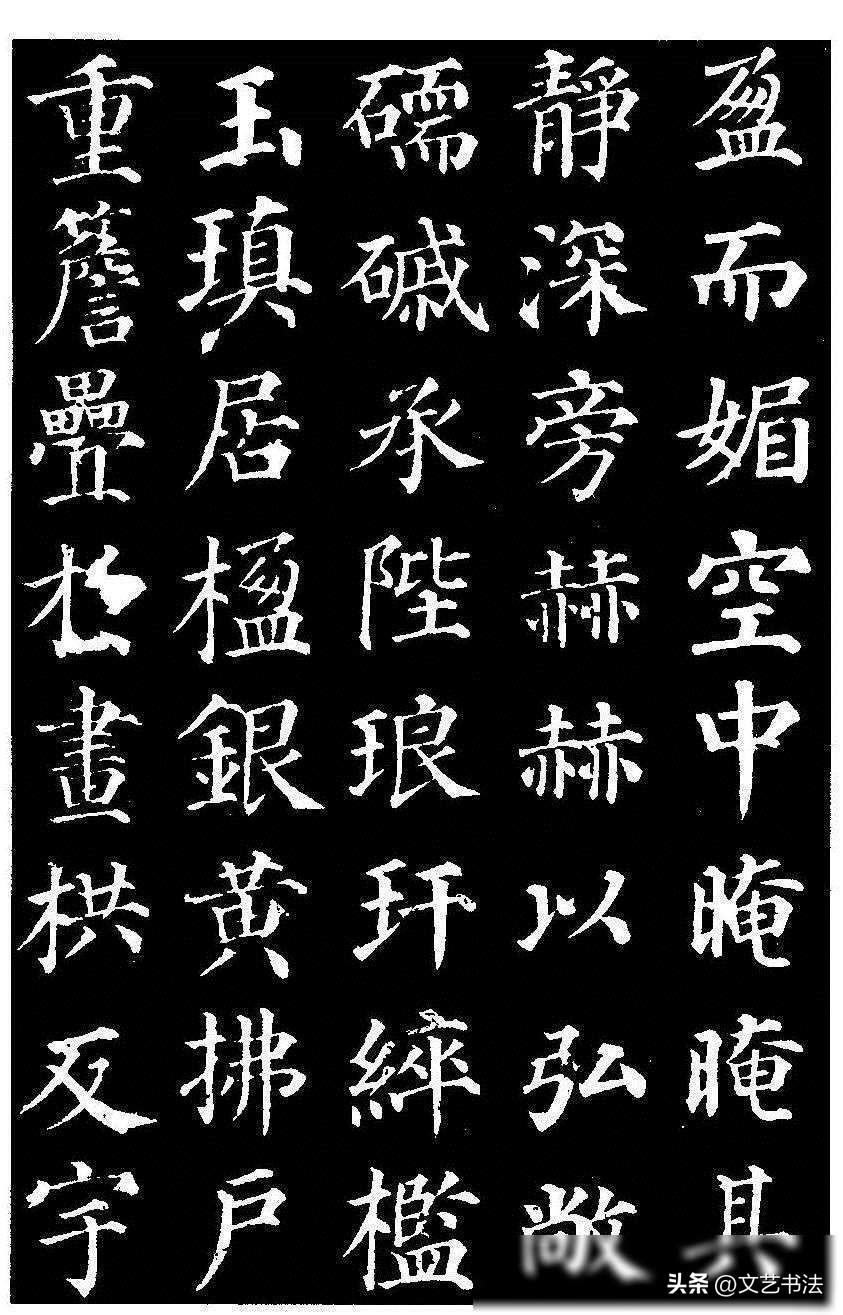 盈而媚空中晻晻其
靜深旁赫赫以弘敞
礝磩承陛琅玕綷檻
玉瑱居楹銀黄拂戶
重簷疊畫栱反宇
头条 @文艺书法